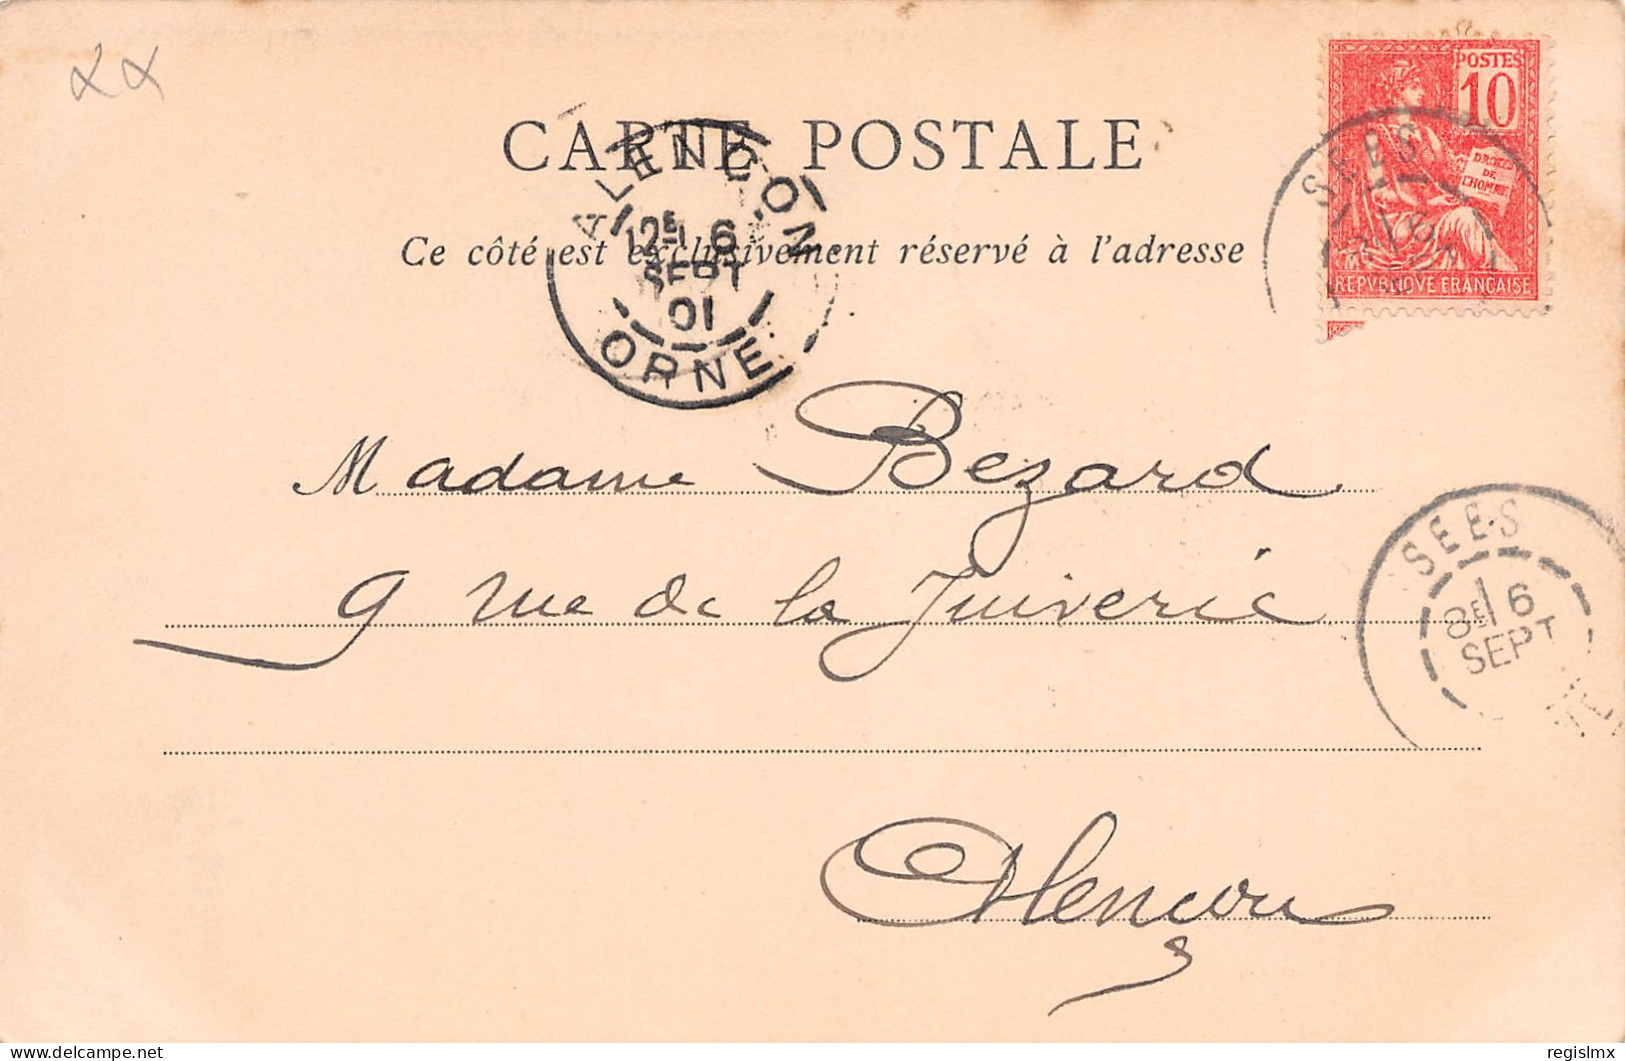 αα
POSTES
10
DROITS
DE
L'HOMME
REPVBLIQVE FRANÇAISE
SEES
CARTE POSTALE
ALENÇON
12E 6
SEPT
01
ORNE
Ce côté est exclusivement réservé à l'adresse
Madame Bezard
9 rue de la Juiverie
SEES
8E 6
SEPT
Alençon
Delcampe.net
regislmx